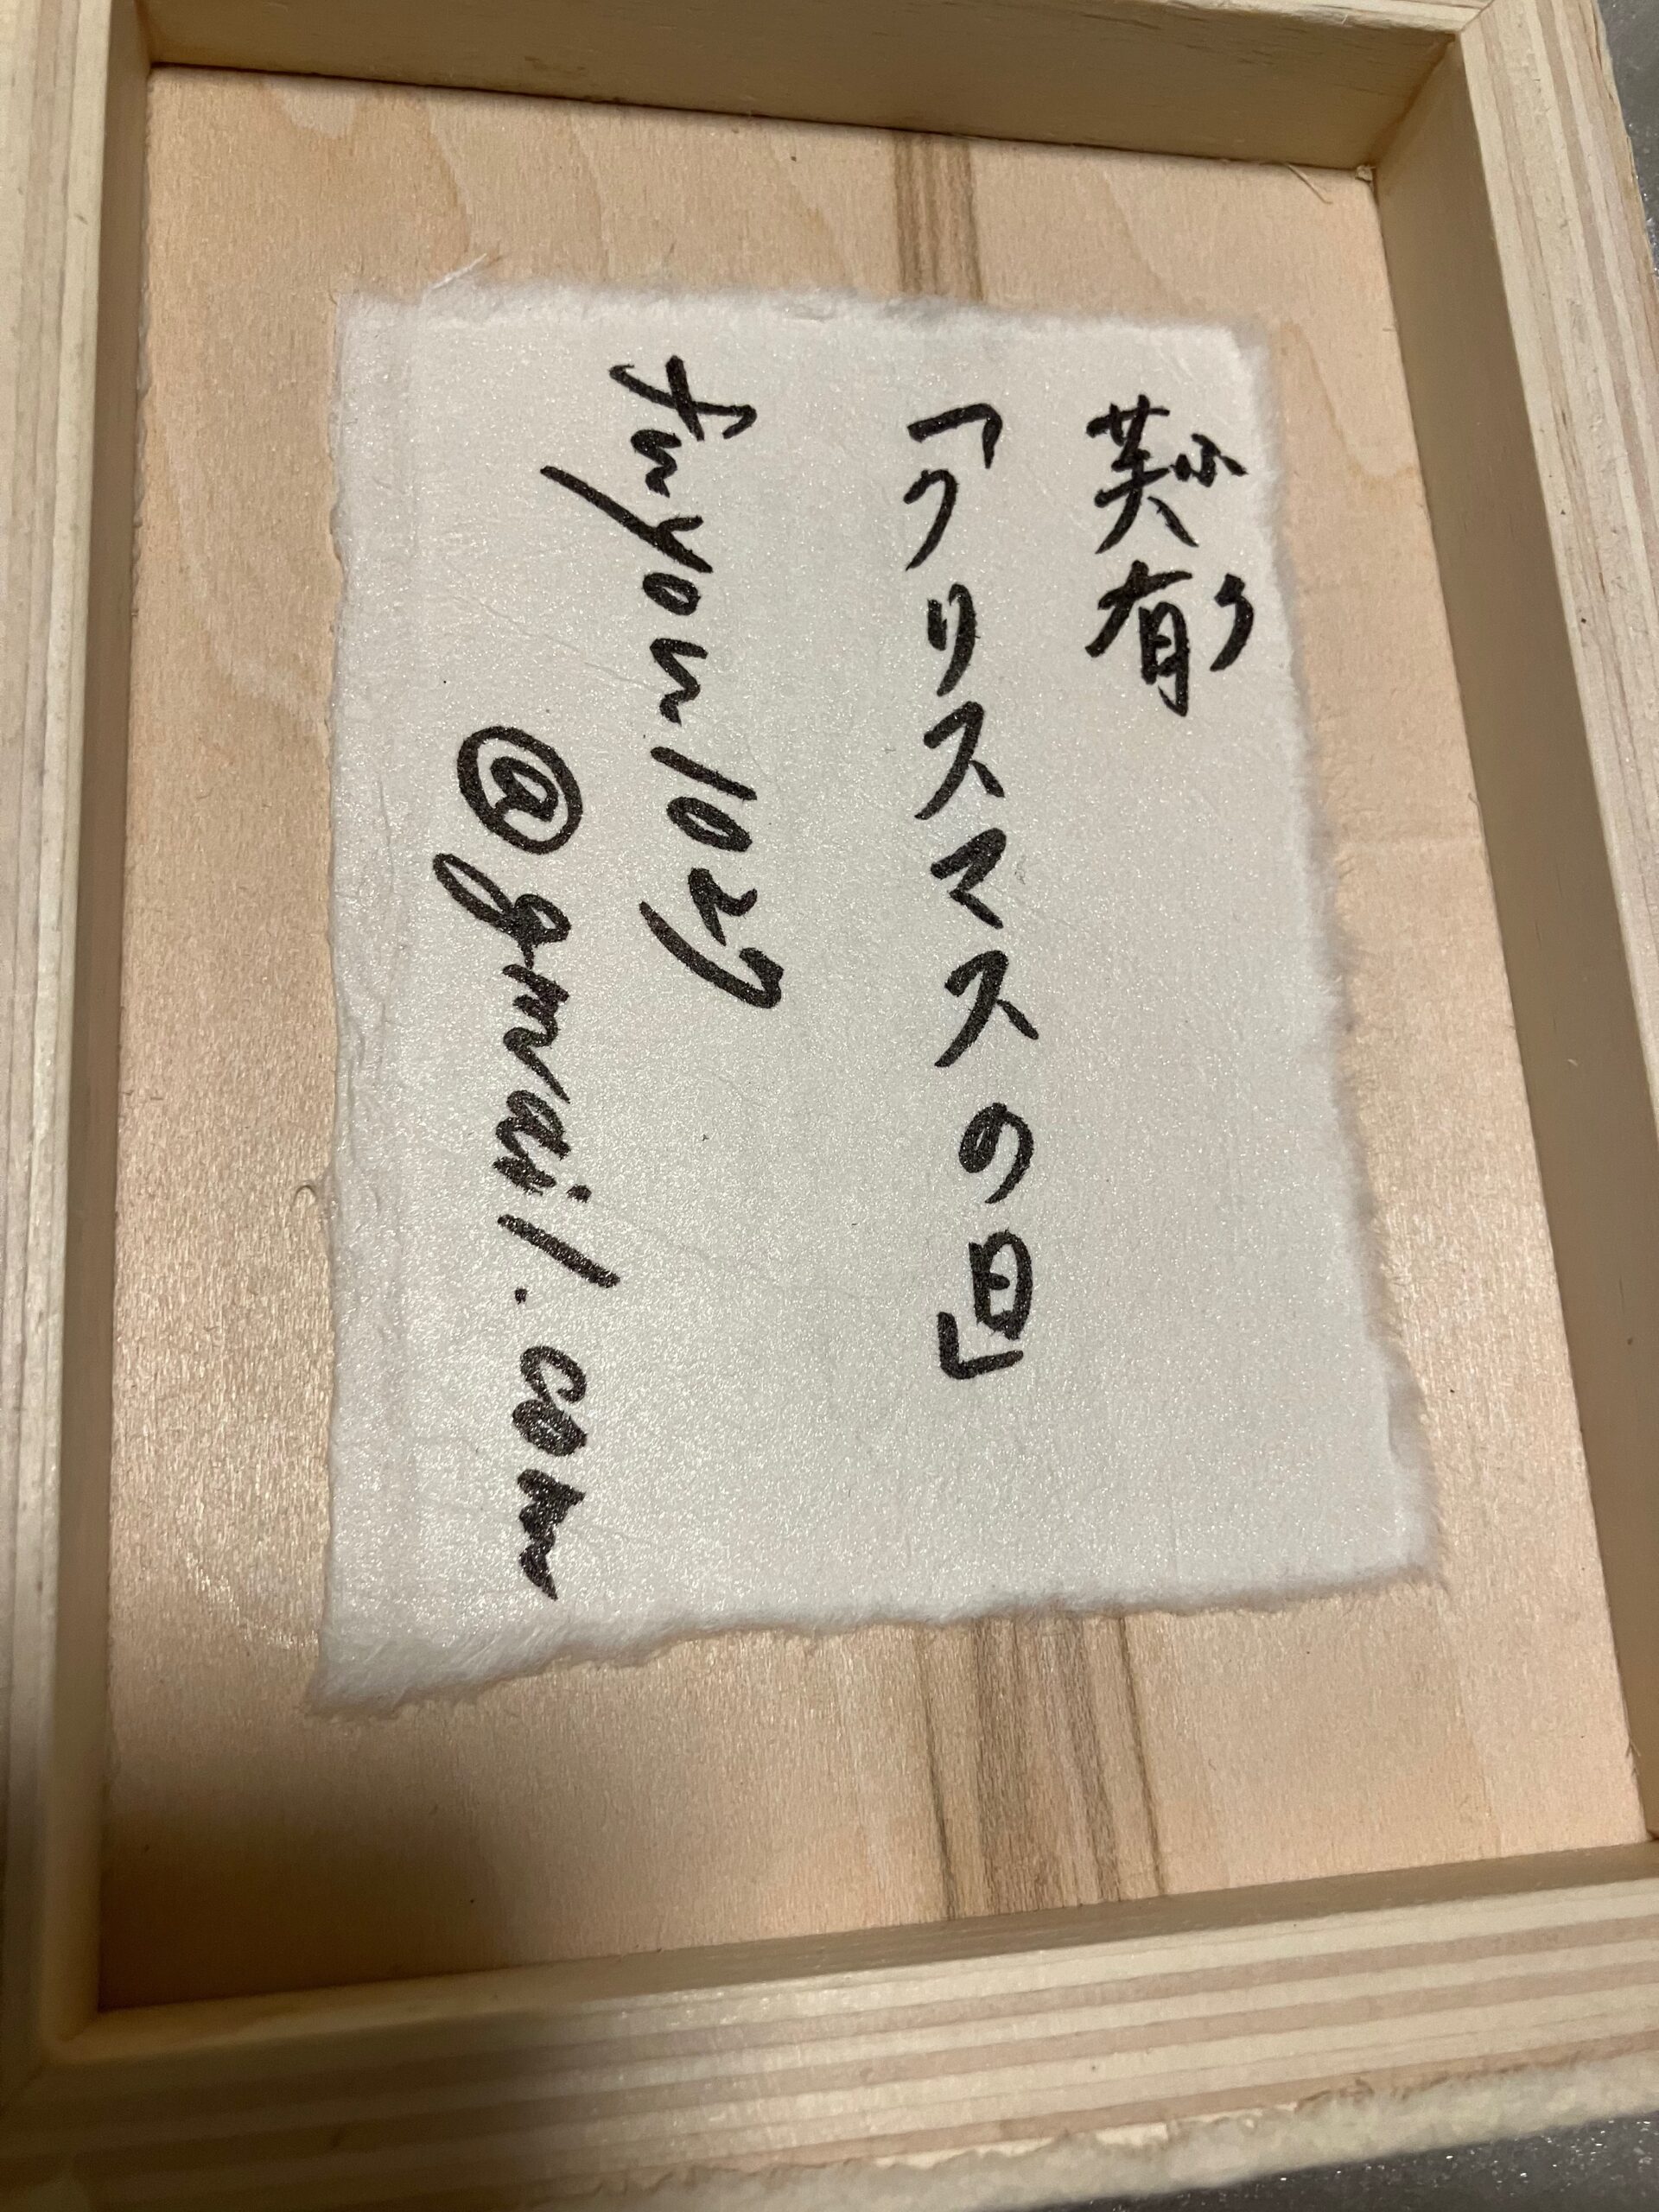 芙有
ふ う
「クリスマスの日」
fuyou1027
@gmail.com